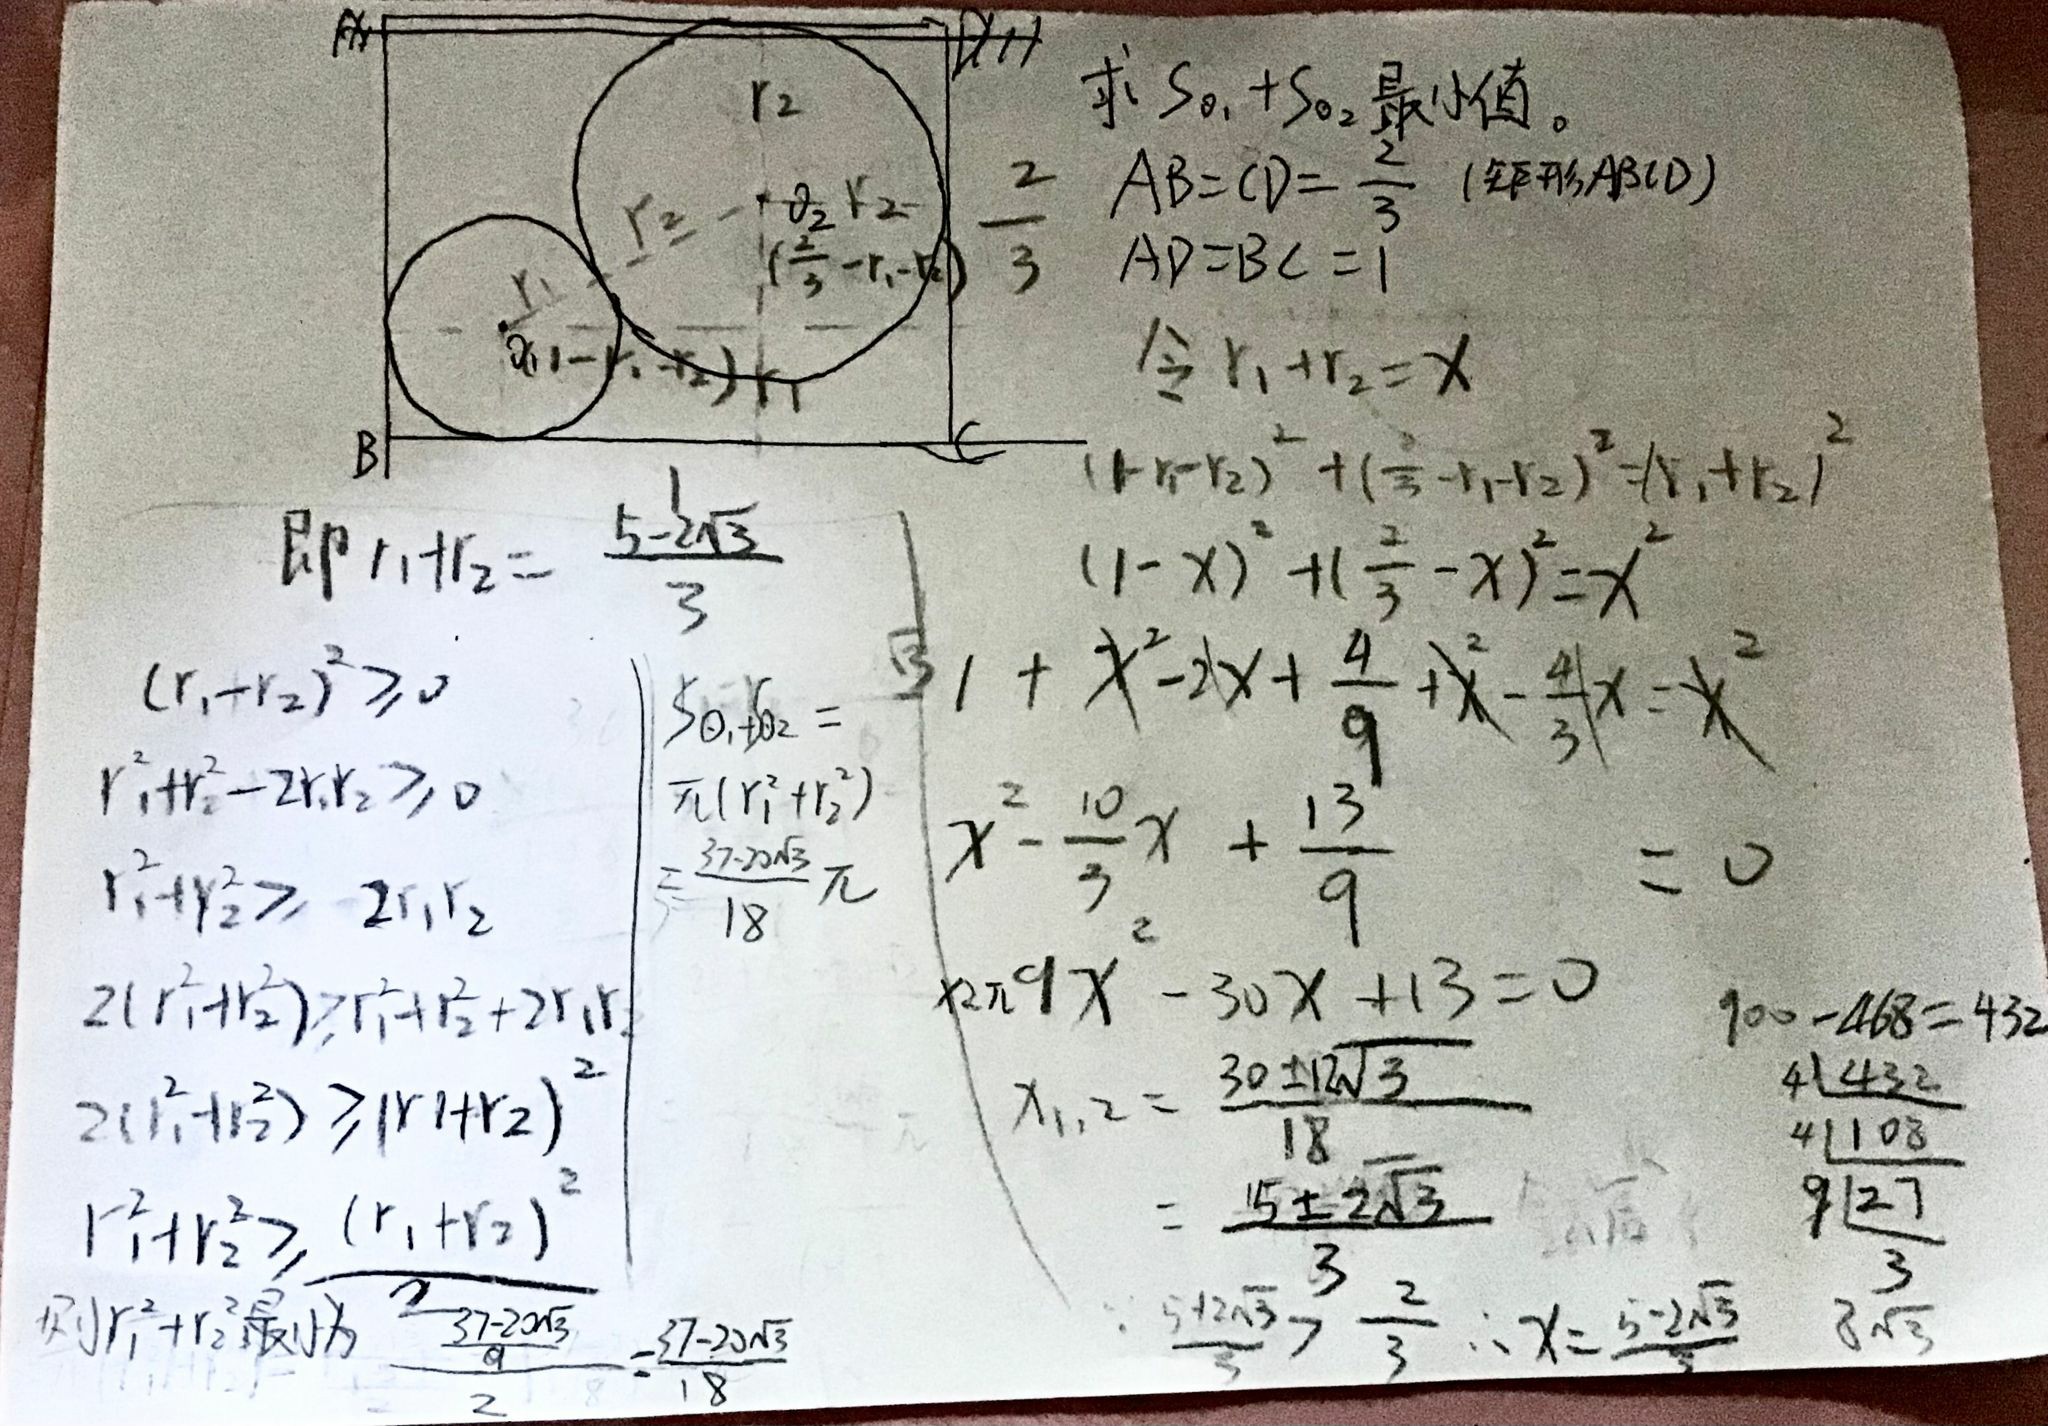 r₂
O₂ r₂
r₂
(2/3-r₁-r₂)
2/3
r₁
O₁(1-r₁-r₂) r₁
B
C
求S⊙₁+S⊙₂最小值。
AB=CD=2/3 (矩形ABCD)
AD=BC=1
令r₁+r₂=x
(1-r₁-r₂)²+(2/3-r₁-r₂)²=(r₁+r₂)²
(1-x)²+(2/3-x)²=x²
1+x²-2x+4/9+x²-4/3x=x²
x²-10/3x+13/9=0
9x²-30x+13=0
900-468=432
x₁,₂=(30±12√3)/18
4 432
4 108
9 27
3
=(5±2√3)/3
∵(5+2√3)/3>2/3 ∴x=(5-2√3)/3
即r₁+r₂=(5-2√3)/3
(r₁-r₂)²≥0
r₁²+r₂²-2r₁r₂≥0
r₁²+r₂²≥2r₁r₂
2(r₁²+r₂²)≥r₁²+r₂²+2r₁r₂
2(r₁²+r₂²)≥(r1+r₂)²
r₁²+r₂²≥(r₁+r₂)²/2
则r₁²+r₂²最小为((37-20√3)/9)/2=(37-20√3)/18
S⊙₁+⊙₂=
π(r₁²+r₂²)
=(37-20√3)/18π